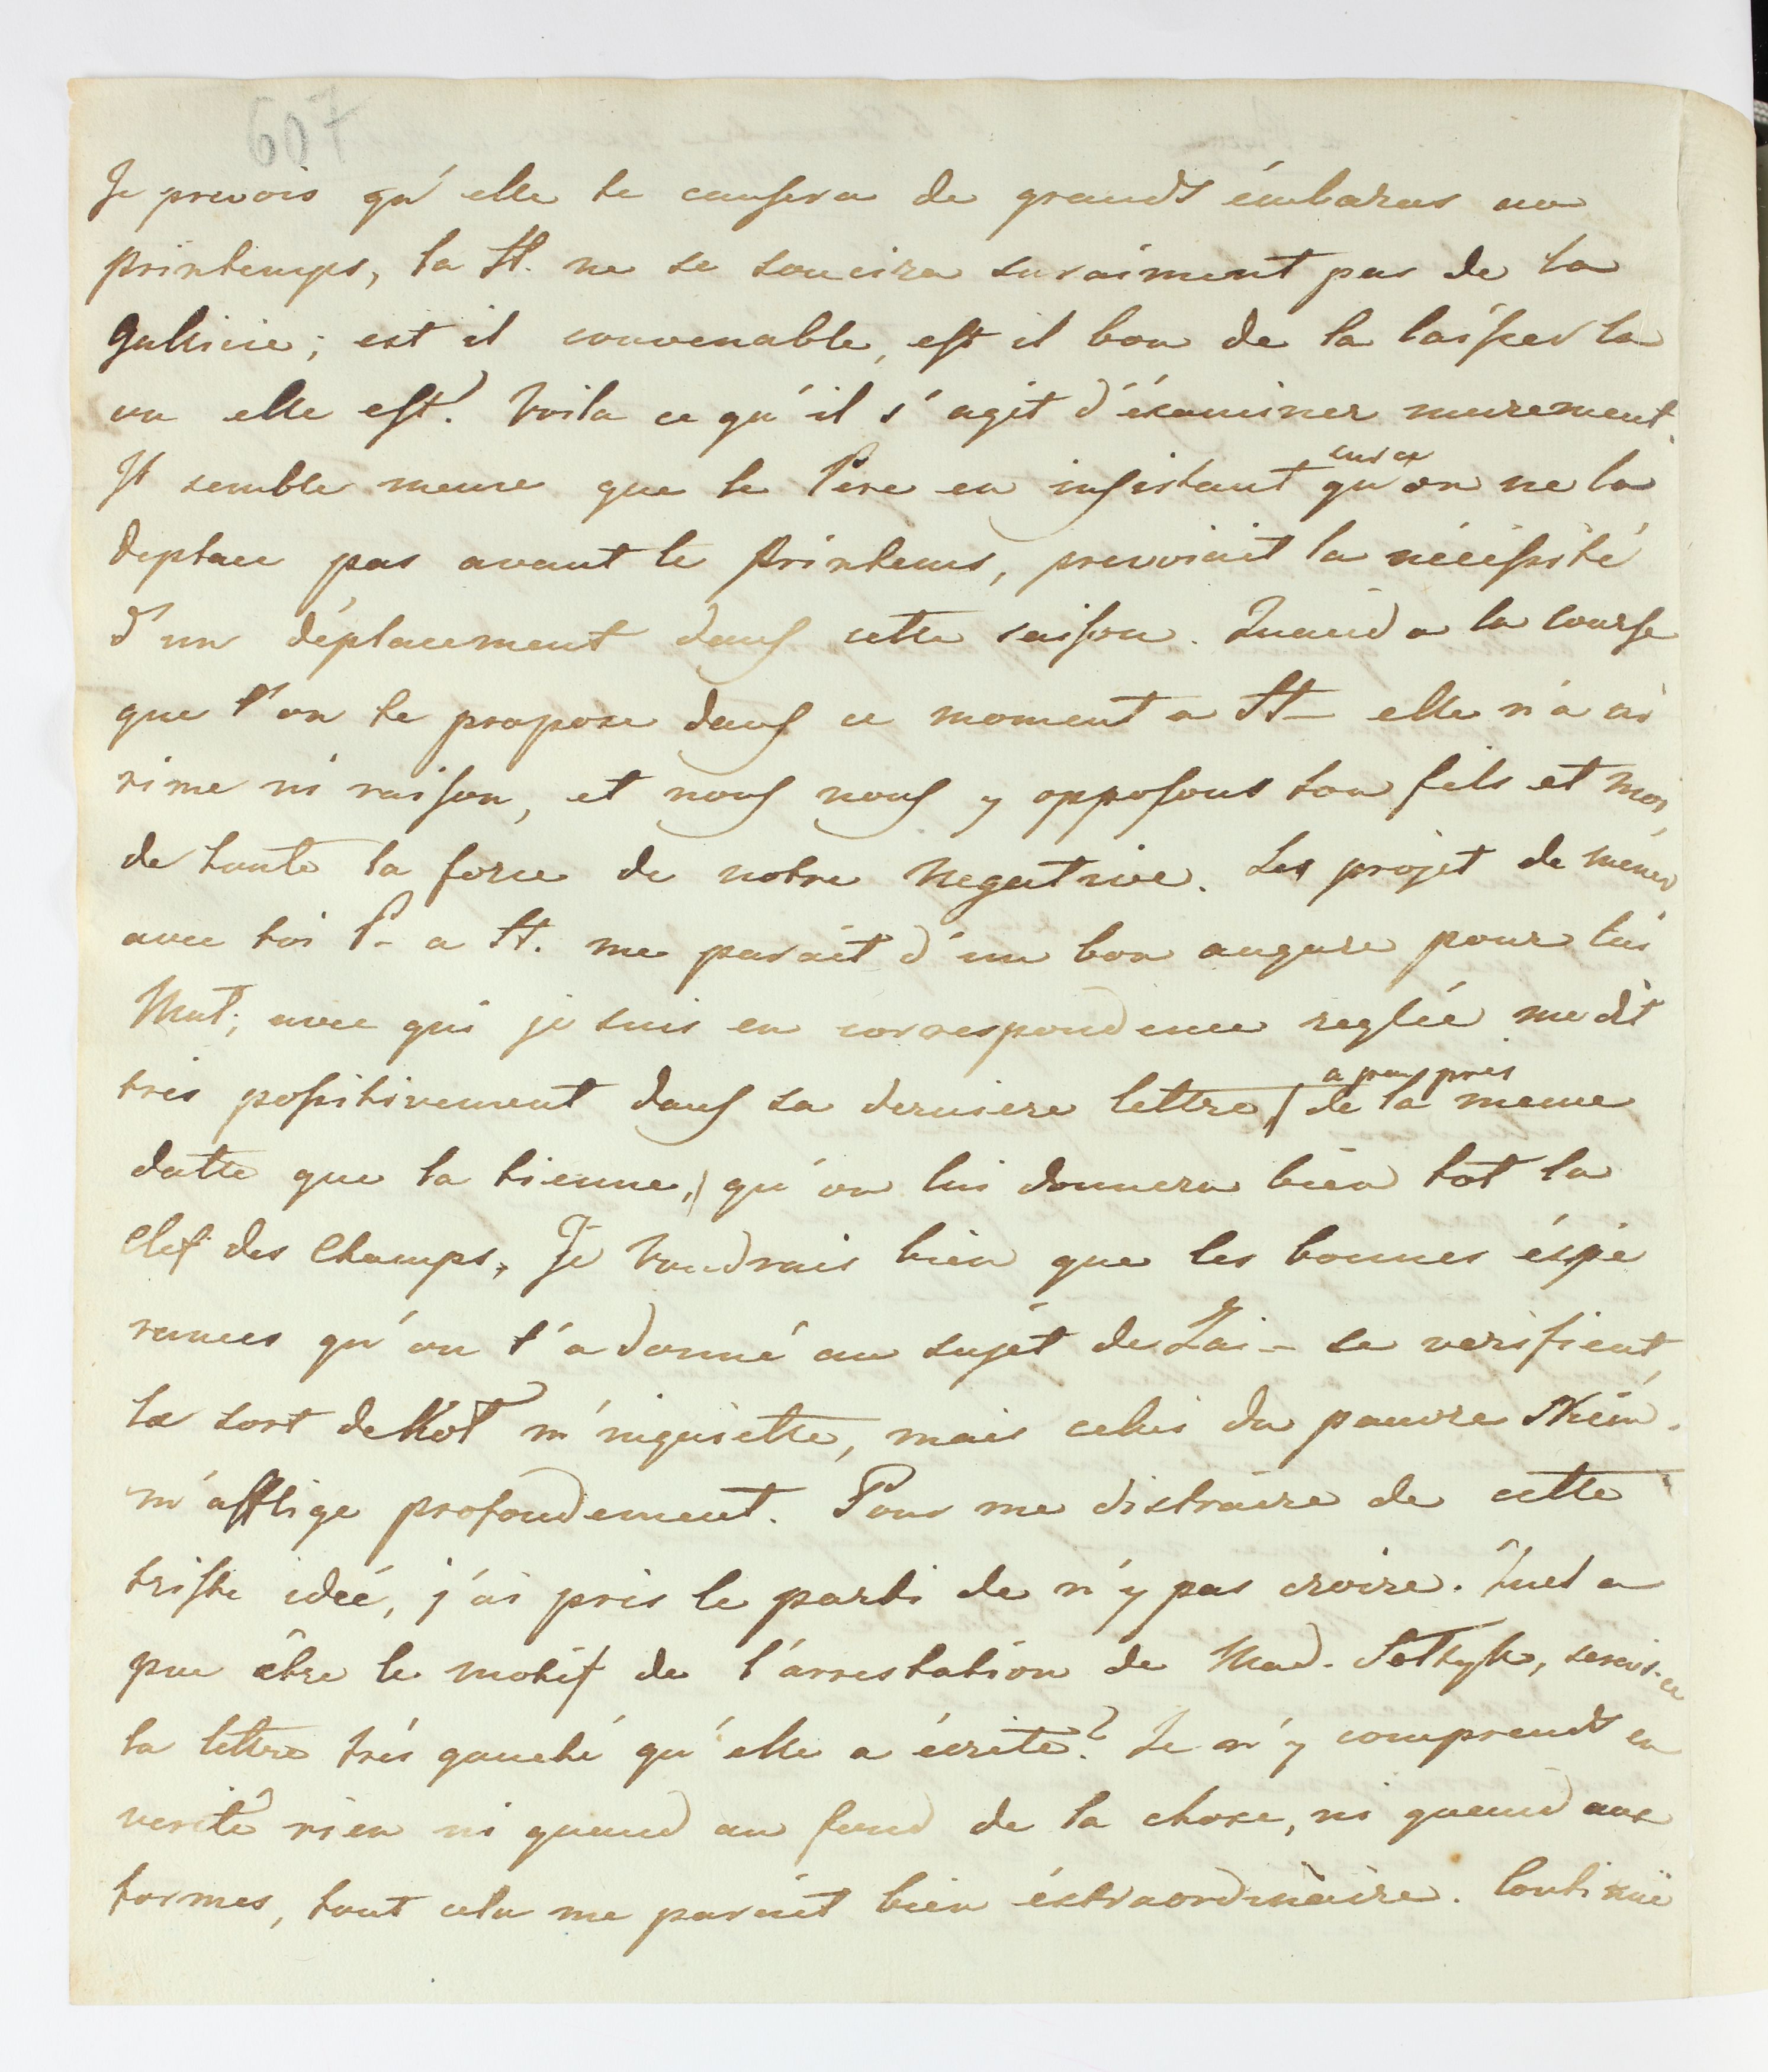 607
Je prevois qu'elle te causera de grands émbaras au
printemps, la St. ne se soucira suraiment pas de la
Gallicie; est il convenable, est il bon de la laisser la
ou elle est? Voila ce qu'il s'agit d'éxaminer murement.
Il semble meme que le Père en insistant sur ce qu'on ne la
deplace pas avant le printems, prevoiait la nécéssité
d'un déplacement dans cette saison. Quand a la course
que l'on te propose dans ce moment a St- elle n'a ni
rime ni raison, et nous nous y opposons ton fils et moi,
de toute la force de notre negative. Les projet de mener
avec toi P- a St. me parait d'un bon augure pour lui
Mat; avec qui je suis en correspondence reglée me dit
tres positivement dans sa derniere lettre, (a peu près de la meme
datte que la tienne,) qu'on lui donnera bien tot la
Clef des Champs. Je voudrais bien que les bonnes éspé
rances qu'on t'a donné au sujet de Zai- se verifient,
le sort de Kot m'inquiette, mais celui du pauvre
m'afflige profondement. Pour me distraire de cette
triste ideé, j'ai pris le parti de n'y pas croire. Quel a
pu être le motif de l'arrestation de Mad. Soltyk, serais-ce
la lettre trés gauché qu'elle a écrite? Je n'y comprends en
verité rien ni quand au fond de la chose, ni quand aux
formes, tout cela me parait bien éxtraordinàire. Continuë